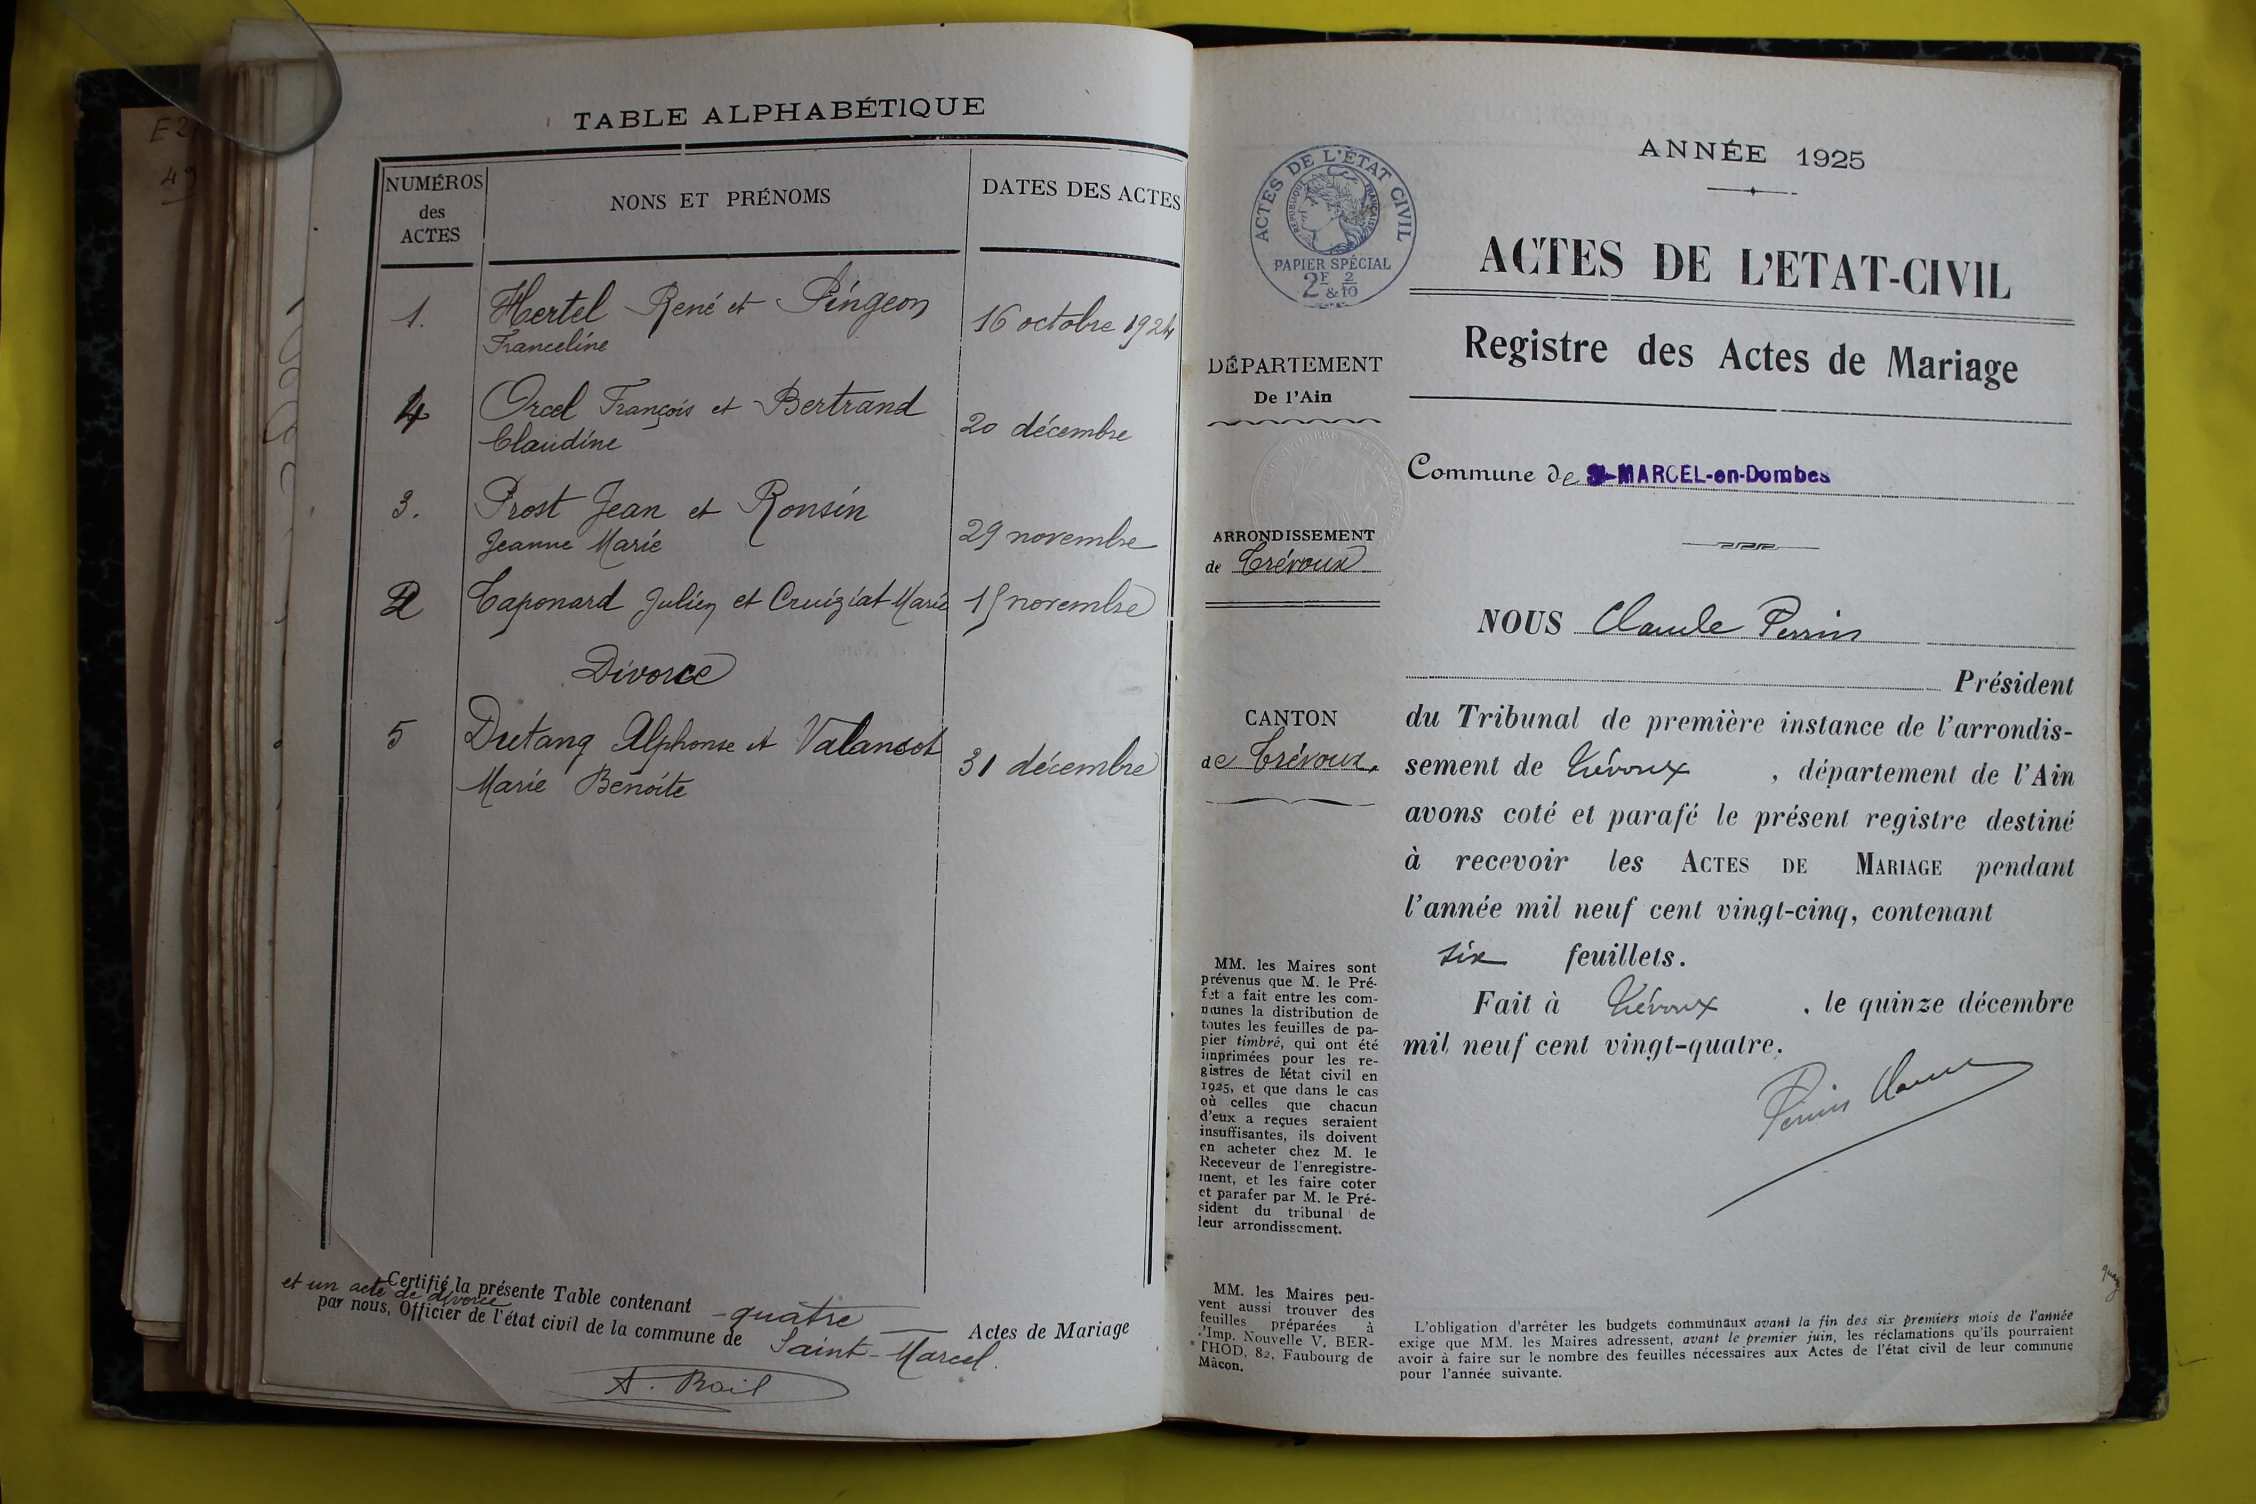 E 2
49
TABLE ALPHABÉTIQUE
NUMÉROS
des
ACTES
NONS ET PRÉNOMS
DATES DES ACTES
1. Hertel René et Pingeon
Franceline
16 octobre 1924
4 Orcel François et Bertrand
Claudine
20 décembre
3. Prost Jean et Ronsin
Jeanne Marie
29 novembre
2 Taponard Julien et Cruiziat Marie 15 novembre
Divorce
5 Dutang Alphonse et Valansot
Marie Benoite
31 décembre
Certifié la présente Table contenant - quatre — Actes de Mariage
et un acte de divorce
par nous, Officier de l'état civil de la commune de Saint-Marcel.
A. Rail
ANNÉE 1925
ACTES DE L'ÉTAT CIVIL
RÉPUBLIQUE FRANÇAISE
PAPIER SPÉCIAL
2F & 2/10
ACTES DE L'ETAT-CIVIL
Registre des Actes de Mariage
DÉPARTEMENT
De l'Ain
Commune de St-MARCEL-en-Dombes
ARRONDISSEMENT
de Trévoux
CANTON
de Trévoux.
NOUS Claude Perrin
Président
du Tribunal de première instance de l'arrondis-
sement de Trévoux , département de l'Ain
avons coté et parafé le présent registre destiné
à recevoir les ACTES DE MARIAGE pendant
l'année mil neuf cent vingt-cinq, contenant
six feuillets.
Fait à Trévoux , le quinze décembre
mil neuf cent vingt-quatre.
Perrin Claude
MM. les Maires sont
prévenus que M. le Pré-
fet a fait entre les com-
munes la distribution de
toutes les feuilles de pa-
pier timbré, qui ont été
imprimées pour les re-
gistres de l'état civil en
1925, et que dans le cas
où celles que chacun
d'eux a reçues seraient
insuffisantes, ils doivent
en acheter chez M. le
Receveur de l'enregistre-
ment, et les faire coter
et parafer par M. le Pré-
sident du tribunal de
leur arrondissement.
MM. les Maires peu-
vent aussi trouver des
feuilles préparées à
l'Imp. Nouvelle V. BER-
THOD, 82, Faubourg de
Mâcon.
L'obligation d'arrêter les budgets communaux avant la fin des six premiers mois de l'année
exige que MM. les Maires adressent, avant le premier juin, les réclamations qu'ils pourraient
avoir à faire sur le nombre des feuilles nécessaires aux Actes de l'état civil de leur commune
pour l'année suivante.